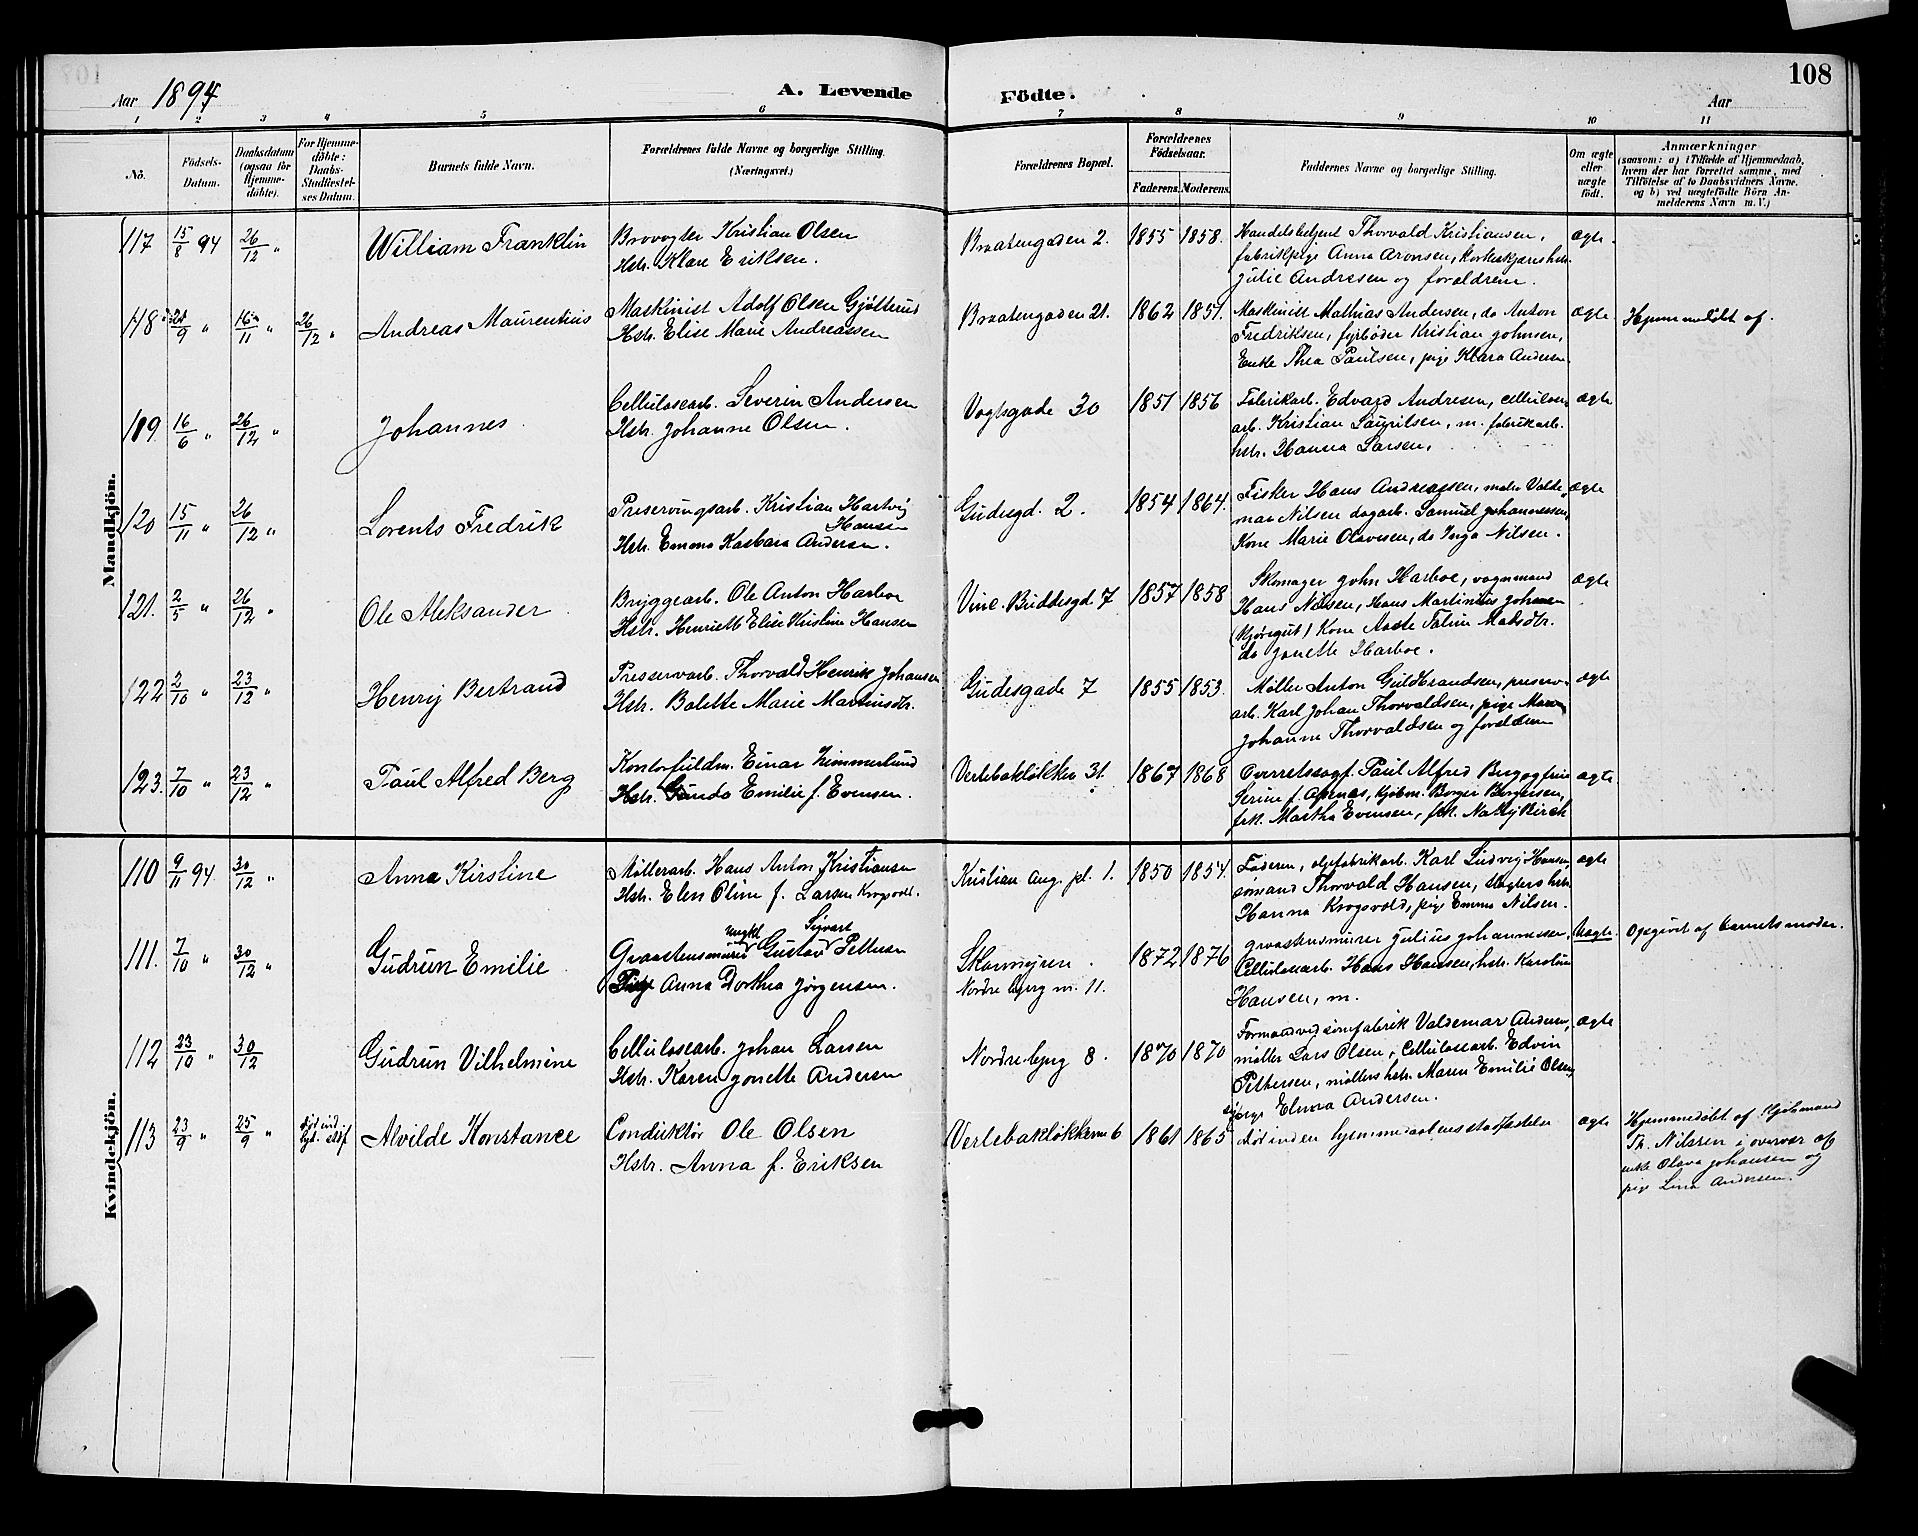 108
Aar 1894
A. Levende Födte.
Aar
1 2 3 4 5 6 7 8 9 10 11
No.
Födsels-Datum.
Daabsdatum (ogsaa for Hjemme-döbte).
For Hjemme-döbte: Daabs-Stadfæstel-ses Datum.
Barnets fulde Navn.
Forældrenes fulde Navne og borgerlige Stilling. (Næringsvei.)
Forældrenes Bopæl.
Forældrenes Födselsaar.
Faderens. Moderens.
Faddernes Navne og borgerlige Stilling.
Om ægte eller uægte födt.
Anmærkninger
(saasom: a) i Tilfælde af Hjemmedaab,
hvem der har forrettet samme, med
Tilföielse af to Daabsvidners Navne,
og b) ved uægtefödte Börn An-
melderens Navn m. V.)
Mandkjön.
117 15/8 94 26/12 " William Franklin
Brovogter Kristian Olsen
Hstr. Klare Eriksen.
Braatengaden 2. 1855 1858.
Handelsbetjent Thorvald Kristiansen,
fabrikpige Anna Aronsen, korkeskjærershstr.
Julie Andresen og foreldrene.
ægte.
118 21/9 " 16/11 " 26/12 " Andreas Maurentius
Maskinist Adolf Olsen Gjötterud
Hstr. Elise Marie Andreassen
Braatengaden 21. 1862 1851.
Maskinist Mathias Andersen, do Anton
Fredriksen, fyrböder Kristian Johnsen,
Enke Thea Paulsen, pige Klara Andersen
ægte
Hjemmedöbt af.
119. 16/6 " 26/12 " Johannes.
Cellulosearb. Severin Andersen
Hstr. Johanne Olsen.
Vogtsgade 30 1851 1856
Fabrikarb. Edvard Andresen, cellulose
arb. Kristian Lauritsen, m. fabrikarb.
hstr. Hanna Larsen.
ægte
120 15/11 " 26/12 " Lorents Fredrik
Preservingsarb. Kristian Hartvig
Hansen
Hstr. Emma Karbara Andersen.
Gudesgd. 2. 1854 1864.
Fisker Hans Andreassen, maler Valde-
mar Nilsen dagarb. Samuel Johannessen,
Kone Marie Olavesen, do Inga Nilsen.
ægte
121. 2/5 " 26/12 " Ole Aleksander
Bryggearb. Ole Anton Harboe
Hstr. Henriette Elise Kristine Hansen
Vinc. Buddesgd 7 1857 1858
Skomager John Harboe, vognmand
Hans Nilsen, Hans Martinius Johnsen
(kjöregut) Kone Aaste Taline Matsdtr.
do Jonette Harboe.
ægte
122 2/10 " 23/12 " Henry Bertrand
Preservarb. Thorvald Henrik Johansen
Hstr. Bolette Marie Martinsdtr.
Gudesgade 7 1855 1853.
Möller Anton Guldbrandsen, preserv-
arb. Karl Johan Thorvaldsen, pige Maren
Johanne Thorvaldsen og foreldrene
ægte
123. 7/10 " 23/12 " Paul Alfred Berg
Kontorfuldm. Einar Zimmerlund
Hstr. Gunda Emilie f. Evensen.
Verlebaklökken 31. 1867 1868
Overretssagf. Paul Alfred Berg og frue
Serine f. Apenes, kjöbm. Borger Borgersen,
frk. Martha Evensen, frk. Nathy Kirch
ægte
Kvindekjön.
110 9/11 94. 30/12 " Anna Kirstine
Möllerarb. Hans Anton Kristiansen
Hstr. Elen Oline f. Larsen Krogsvold.
Kristian Aug. pl. 1. 1850 1854.
Faderen, oljefabrikarb. Karl Ludvig Hansen
sömand Thorvald Hansen, slagters hstr.
Hanna Krogsvold, pige Emma Nilsen.
ægte
111. 7/10 " 30/12 " Gudrun Emilie.
ungkl Sigvart
Graastensmurer Gustav Pettersen
Pige Anna Dorthea Jörgensen.
Skarmyren.
Nordre bjerg nr. 11.
1872 1876
graastensmurer Julius Johannessen,
Cellulosearb. Hans Hansen, hstr. Karoline
Hansen, m.
Uægte.
Opgivet af barnets moder.
112 23/10 " 30/12 Gudrun Vilhelmine
Cellulosearb. Johan Larsen
Hstr. Karen Jonette Andersen
Nordrebjerg 8. 1870 1870
Formand ved simfabrik Valdemar Andersen,
möller Lars Olsen, Cellulosearb. Edvin
Pettersen, möllers hstr. Maren Emilie Olsen,
pige Elma Andersen.
ægte
113 23/9 " 25/9 " Alvilde Konstance
Conduktör Ole Olsen
Hstr. Anna f. Eriksen
Verlebaklökken 6 1861 1865
död inden hjemmedaabens stadfæstelse
ægte
Hjemmedöbt af Kjöbmand
Th. Nilsen i overvær af
enke Olava Johansen og
pige Lina Andersen.